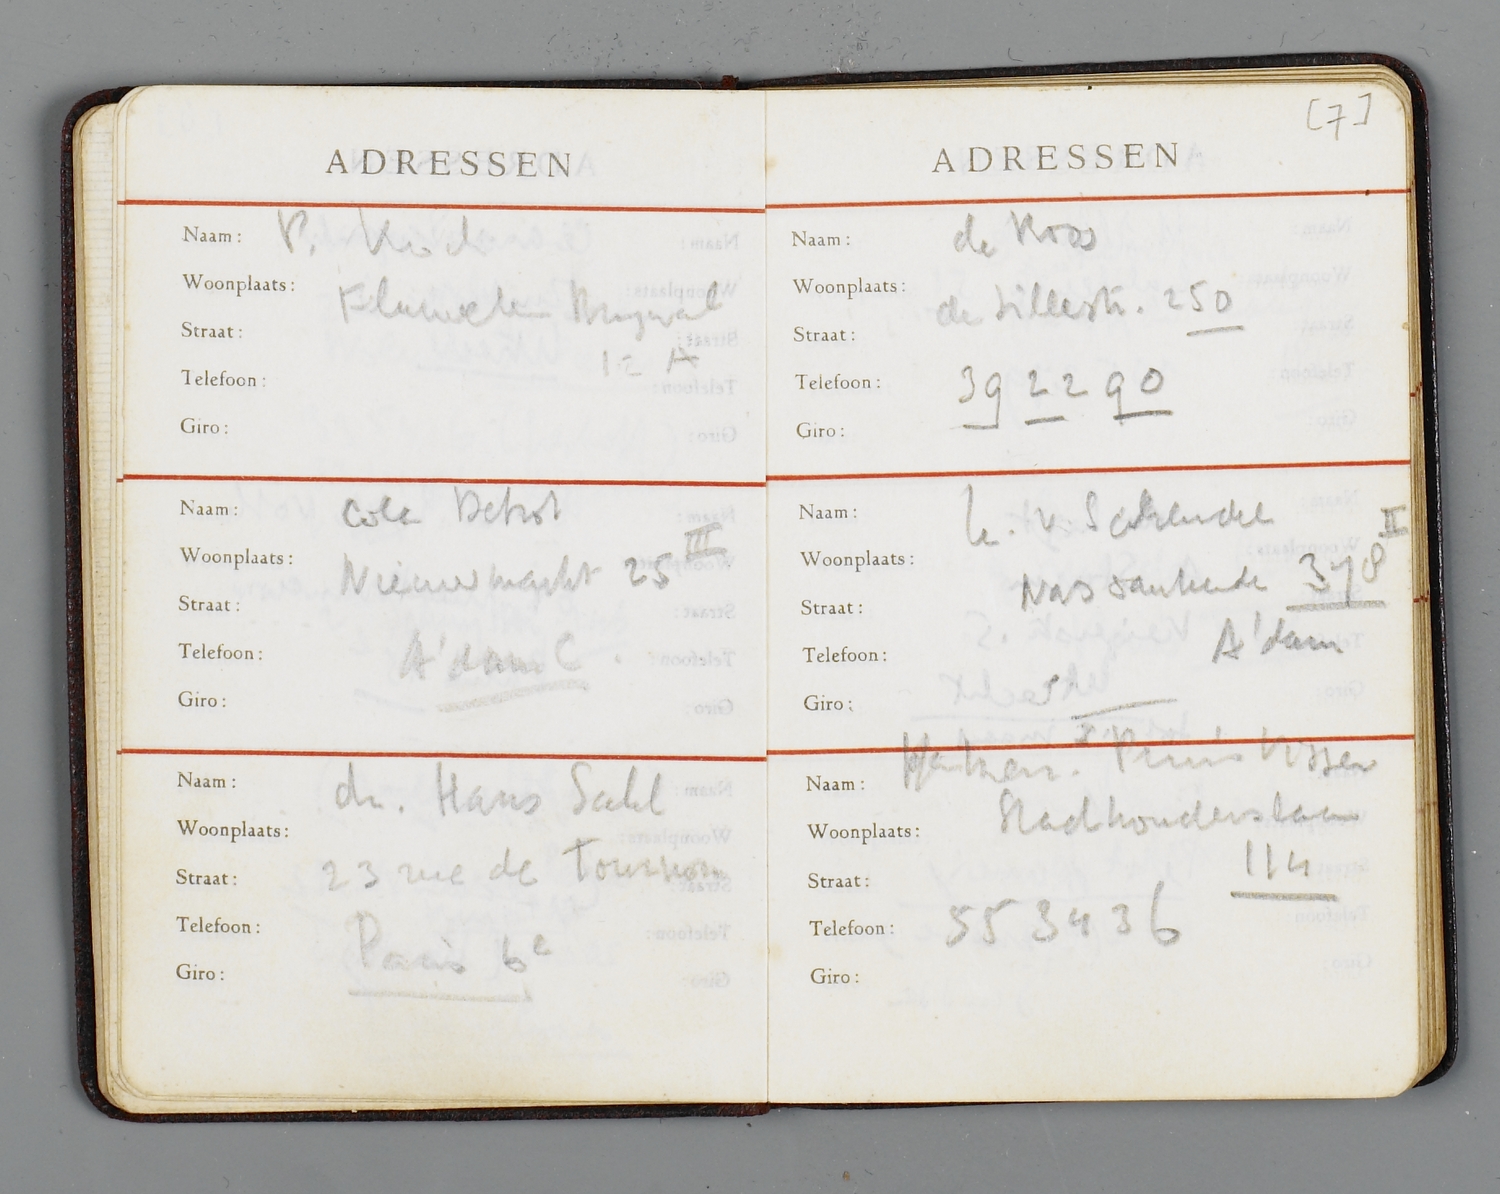 ADRESSEN
Naam: P. Koch
Woonplaats:
Straat:
12 A
Telefoon:
Giro:
Naam: Cola Debrot
Woonplaats: Nieuwmarkt 25 III
Straat:
Telefoon: A'dam C.
Giro:
Naam: dr. Hans Sahl
Woonplaats:
Straat: 23 rue de Tournon
Telefoon: Paris 6e
Giro:
[7]
ADRESSEN
Naam: de Roos
Woonplaats: 250
Straat:
Telefoon: 39 22 90
Giro:
Naam: v Schendel
Woonplaats: II
Nassaukade 378
Straat:
Telefoon: A'dam
Giro:
Naam:
Woonplaats: Stadhouderslaan
Straat: 114
Telefoon: 55 34 36
Giro: